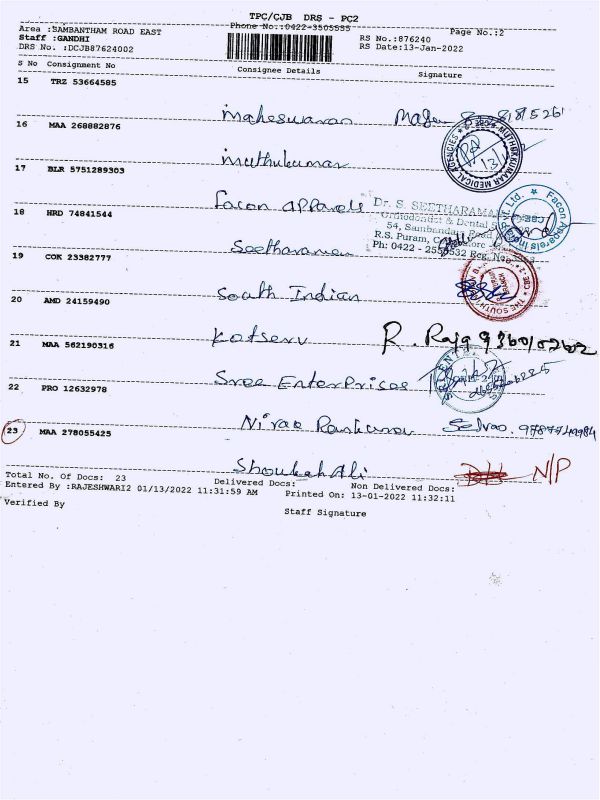 TPC/CJB DRS - PC2
Phone No.:0422-3505555
Area :SAMBANTHAM ROAD EAST
RS No.:876240
Page No.:2
Staff :GANDHI
RS Date:13-Jan-2022
DRS No. :DCJB87624002
S No Consignment No Consignee Details Signature
15 TRZ 53664585
Maheswaran
16 MAA 268882876
Muthukumar
MUTHUKUMAAR MEDICAL AGENCIES
17 BLR 5751289303
Facon Apparels
Facon Apparels India Pvt. Ltd.
CBE
Dr. S. SEETHARAMAN
Orthodontist & Dental
54, Sambandam Road
R.S. Puram,
Ph: 0422 -
18 HRD 74841544
Seetharaman
19 COK 23382777
South Indian
THE SOUTH
20 AMD 24159490
R. Raja
21 MAA 562190316
Sree Enterprises
22 PRO 12632978
23 MAA 278055425
Shoukah Ali
N/P
Total No. of Docs: 23 Delivered Docs: Non Delivered Docs:
Entered By :RAJESHWARI2 01/13/2022 11:31:59 AM Printed On: 13-01-2022 11:32:11
Verified By
Staff Signature